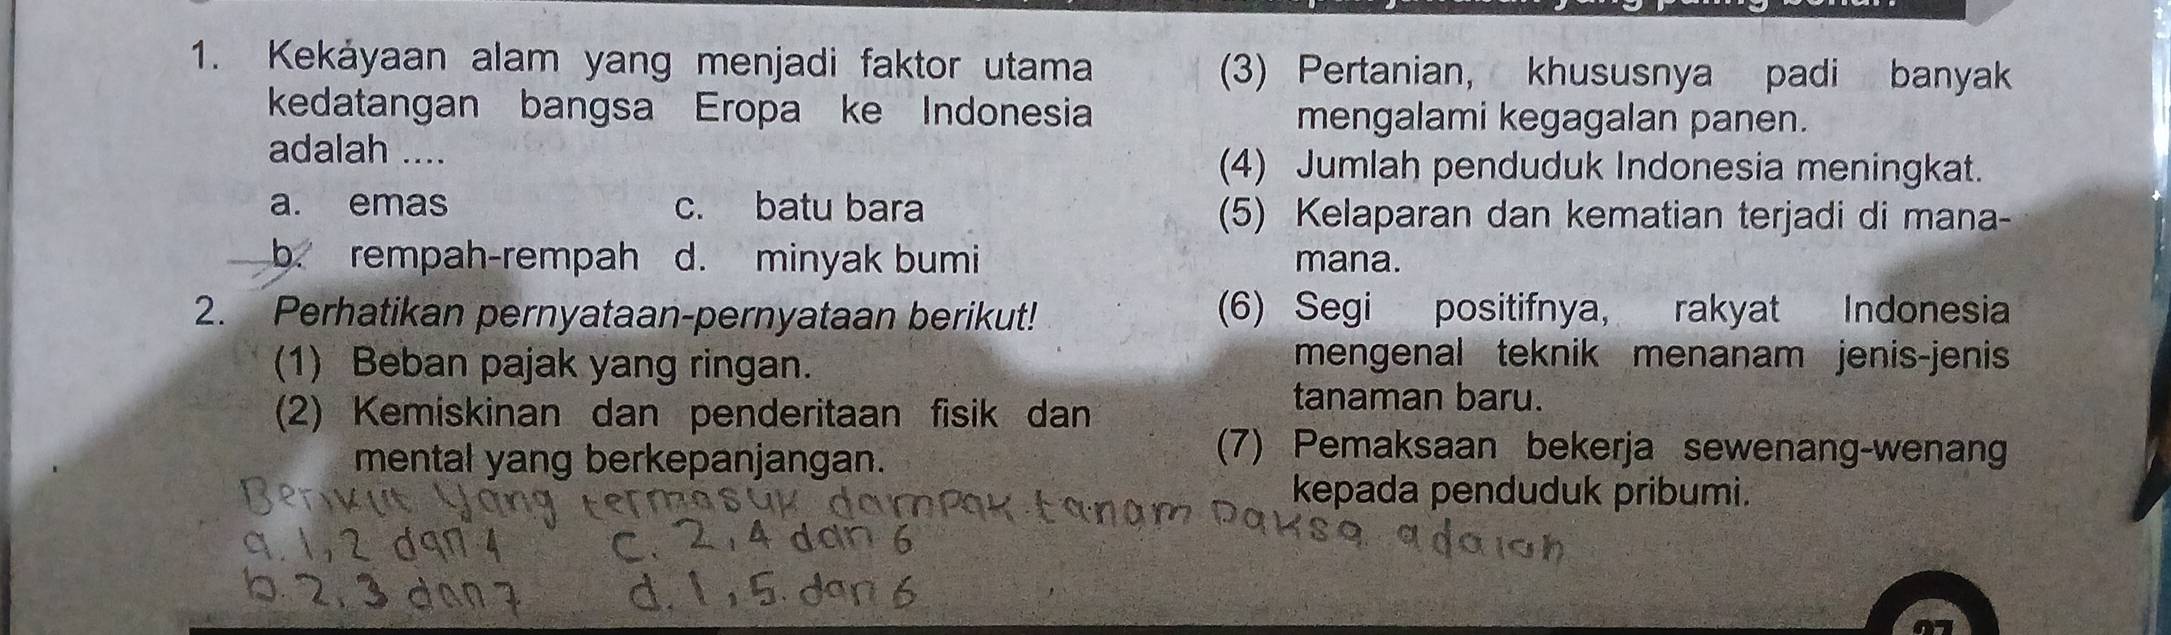 1. Kekayaan alam yang menjadi faktor utama
kedatangan bangsa Eropa ke Indonesia
adalah ....
a. emas c. batu bara
b. rempah-rempah d. minyak bumi
2. Perhatikan pernyataan-pernyataan berikut!
(1) Beban pajak yang ringan.
(2) Kemiskinan dan penderitaan fisik dan
mental yang berkepanjangan.
(3) Pertanian, khususnya padi banyak
mengalami kegagalan panen.
(4) Jumlah penduduk Indonesia meningkat.
(5) Kelaparan dan kematian terjadi di mana-
mana.
(6) Segi positifnya, rakyat Indonesia
mengenal teknik menanam jenis-jenis
tanaman baru.
(7) Pemaksaan bekerja sewenang-wenang
kepada penduduk pribumi.
Berikut yang termasuk dampak tanam paksa adalah
a. 1, 2 dan 4 c. 2, 4 dan 6
b. 2, 3 dan 7 d. 1, 5. dan 6